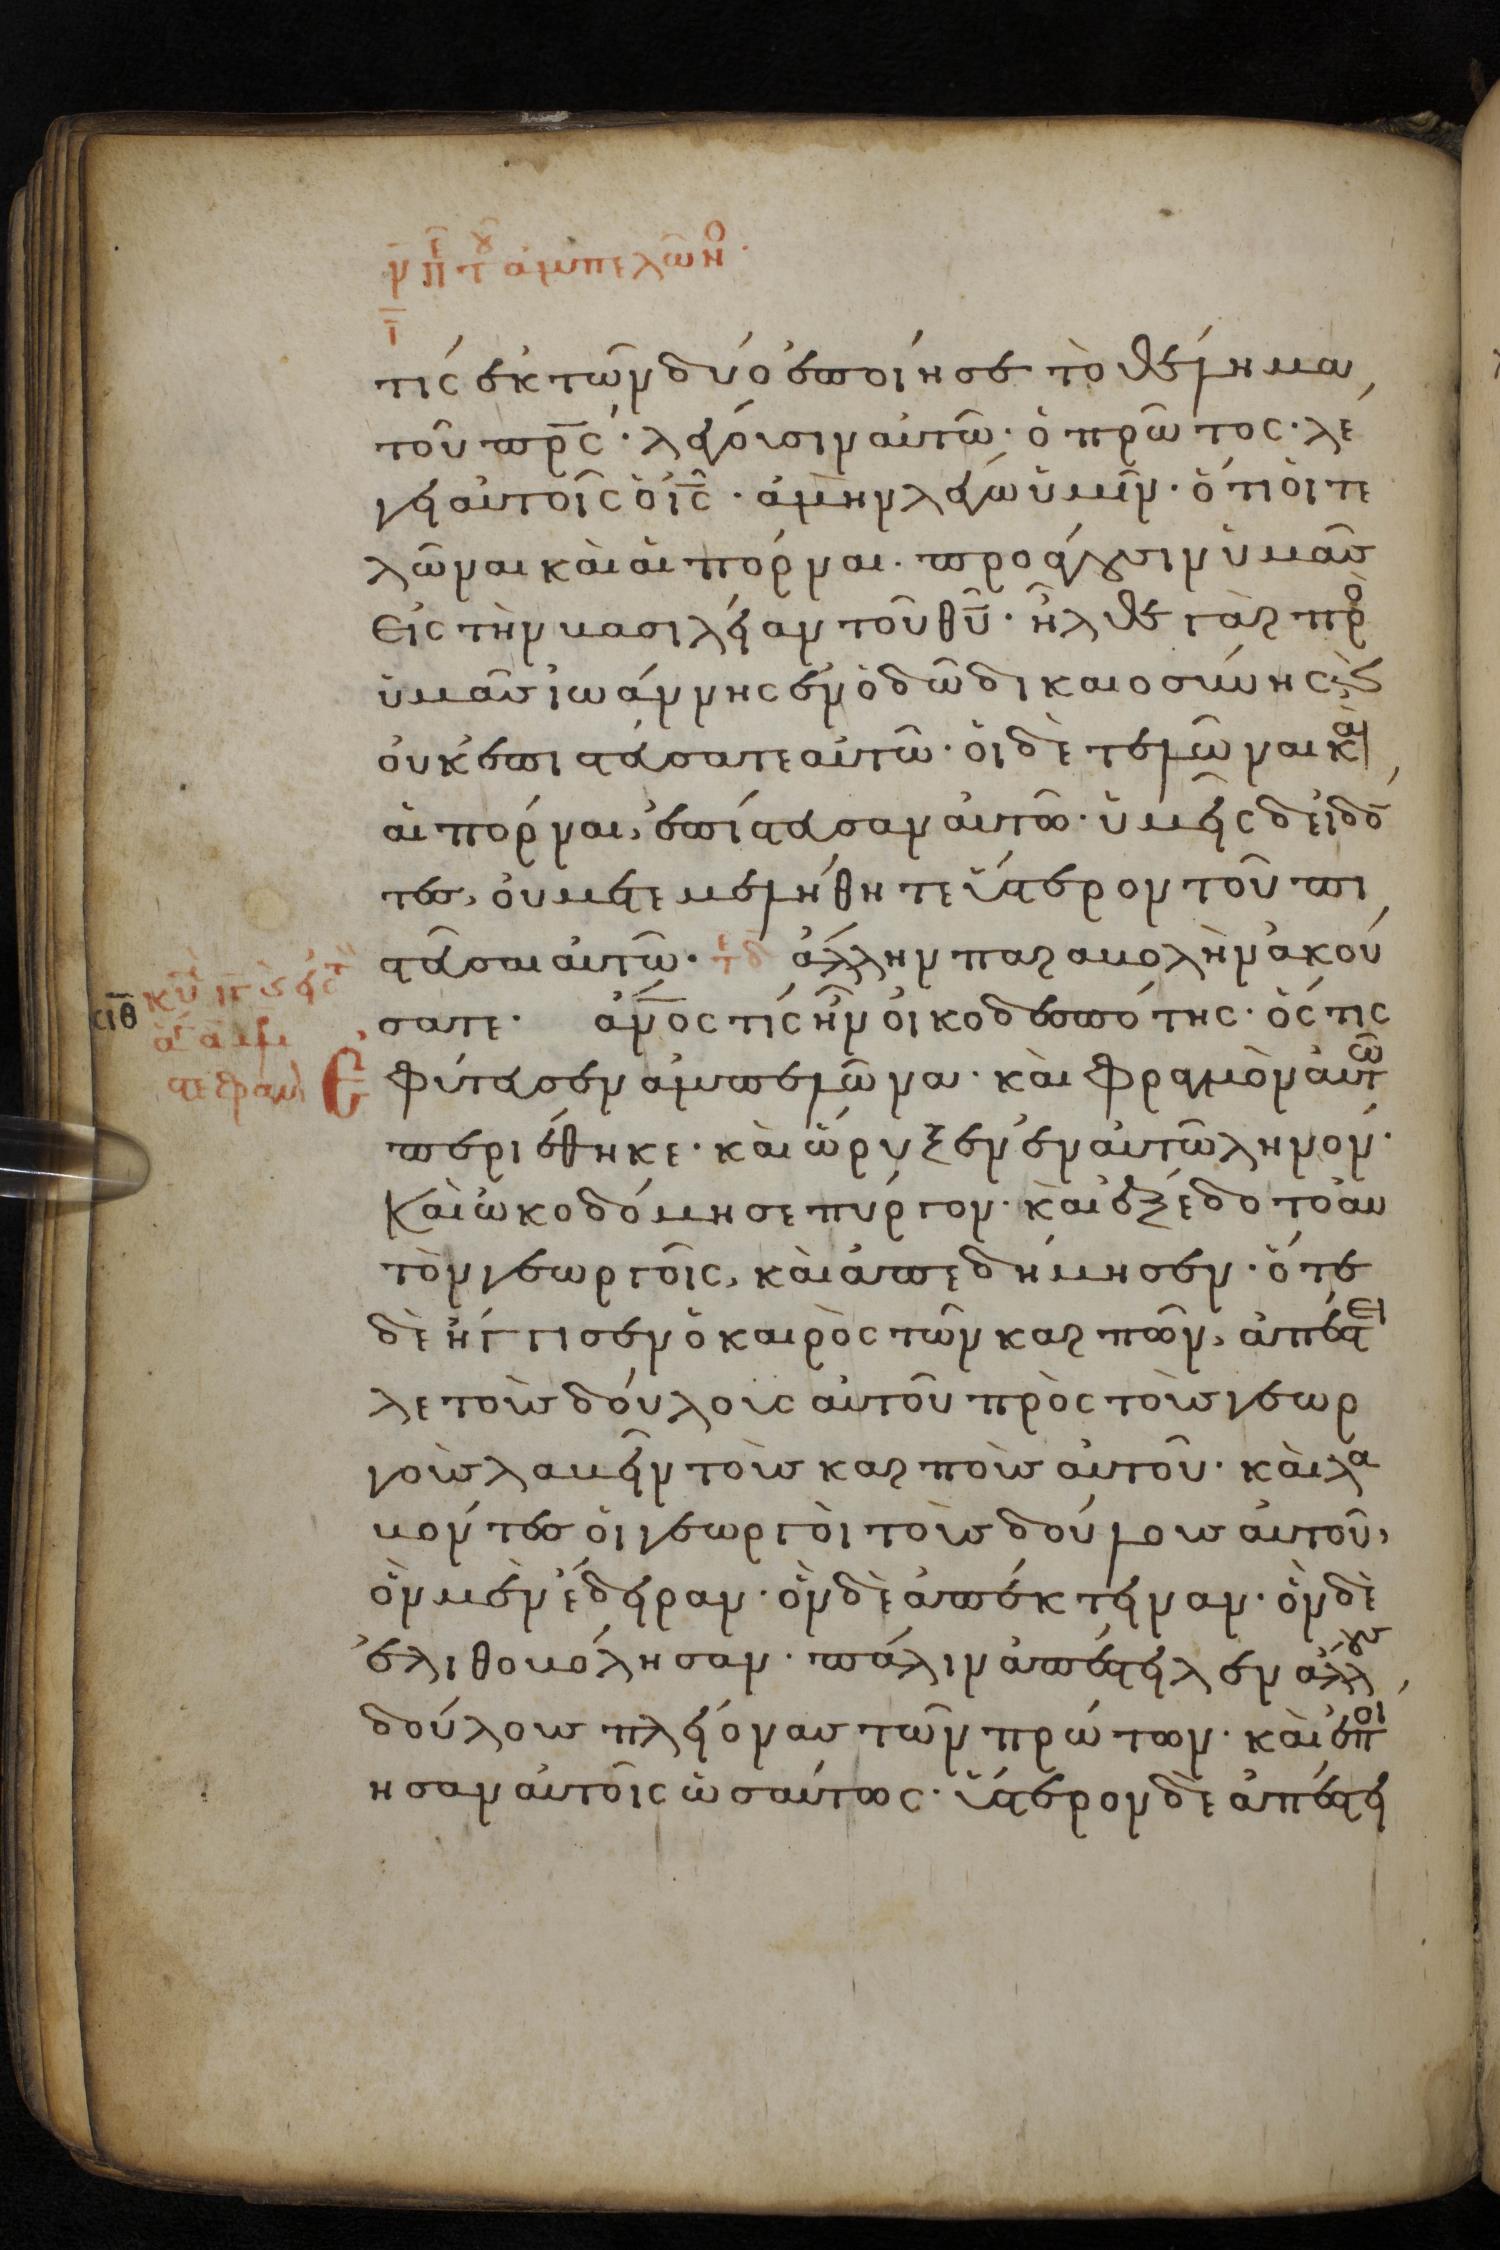 ν̄ π̄ε τοῦ ἀμπελῶνο·
ῑ
τίς ἐκ τῶν δύο ἐποίησε τὸ θέλημα
τοῦ πρ̅ς· λέγουσιν αὐτῶ· ὁ πρῶτος· λέ
γει αὐτοῖς ὁ ι̅ς· ἀμὴν λέγω ὑμῖν· ὅτι οἱ τε
λῶναι καὶ αἱ πόρναι· προάγουσιν ὑμᾶς
εἰς τὴν βασιλείαν τοῦ θ̅υ· ἦλθε γὰρ πρὸ
ὑμᾶς ἰωάννης ἐν ὁδῶ δικαιοσύνης· καὶ
οὐκ ἐπιστεύσατε αὐτῶ· οἱ δὲ τελῶναι καὶ
αἱ πόρναι, ἐπίστευσαν αὐτῶ· ὑμεῖς δὲ ἰδό
τες, οὐ μετεμελήθητε ὕστερον τοῦ πι
στεῦσαι αὐτῶ· τε δ ἄλλην παραβολὴν ἀκού
σατε· ἀν̅ος τίς ἦν οἰκοδεσπότης· ὅς τις
σιθ
Ἐ
φύτευσεν ἀμπελῶνα· καὶ φραγμὸν αὐτῶ
περιέθηκε· καὶ ὤρυξεν ἐν αὐτῶ ληνόν·
Καὶ ὠκοδόμησε πύργον· καὶ ἐξέδοτο αὐ
τὸν γεωργοῖς, καὶ ἀπεδήμησεν· ὅτε
δὲ ἤγγισεν ὁ καιρὸς τῶν καρπῶν, ἀπέστει
λε τοὺς δούλους αὐτοῦ πρὸς τοὺς γεωρ
γοὺς λαβεῖν τοὺς καρποὺς αὐτοῦ· καὶ λα
βόντες οἱ γεωργοὶ τοὺς δούλους αὐτοῦ,
ὃν μὲν ἔδειραν· ὃν δὲ ἀπέκτειναν· ὃν δὲ
ἐλιθοβόλησαν· πάλιν ἀπέστειλεν ἄλλους
δούλους πλείονας τῶν πρώτων· καὶ ἐποί
ησαν αὐτοῖς ὡσαύτως· ὕστερον δὲ ἀπέστει